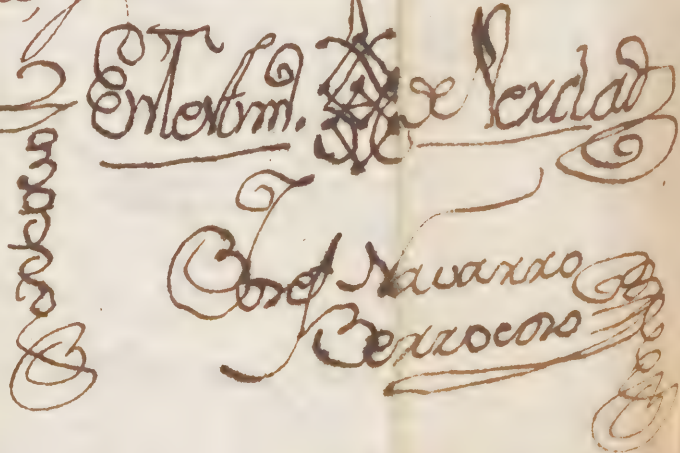 En testim. de Verdad
Josef Navarro
Berrocoso